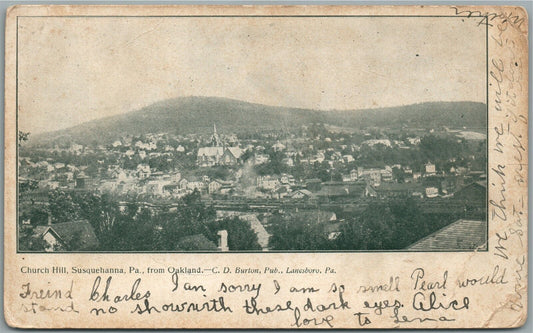 Church Hill, Susquehanna, Pa., from Oakland.—C. D. Burton, Pub., Lanesboro, Pa.
Freind Charles I an sorry I am so small Pearl would
stand no show with these dark eyes. Alice
love to Lena
We think we will be
home Sat - next